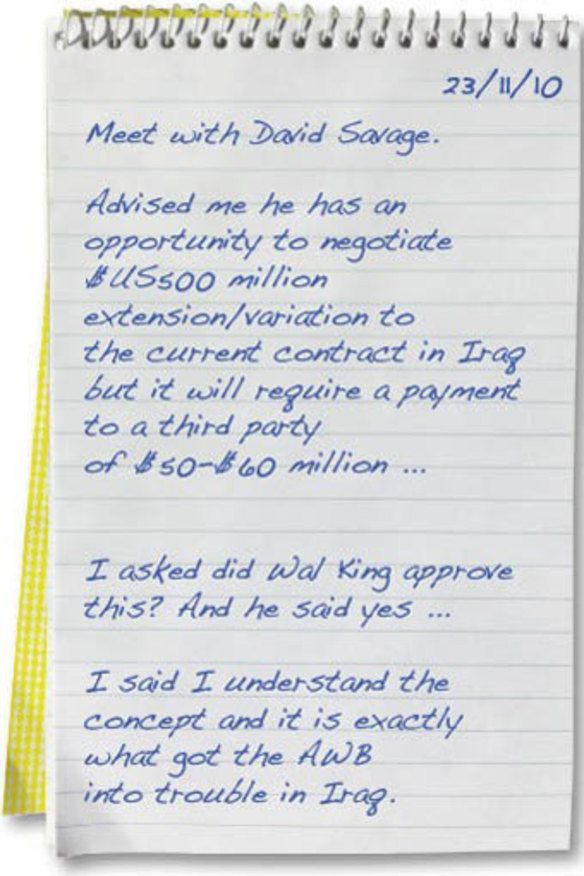 23/11/10
Meet with David Savage.
Advised me he has an
opportunity to negotiate
$US500 million
extension/variation to
the current contract in Iraq
but it will require a payment
to a third party
of $50-$60 million ...
I asked did Wal King approve
this? And he said yes ...
I said I understand the
concept and it is exactly
what got the AWB
into trouble in Iraq.